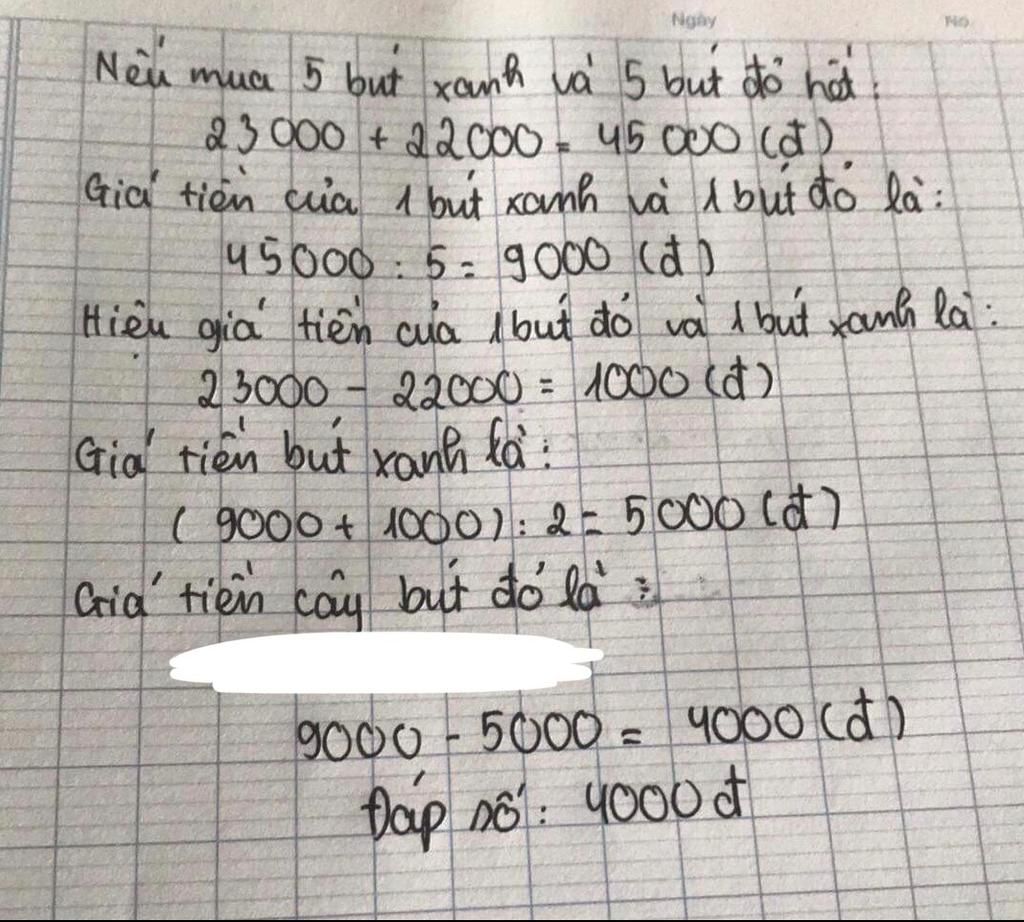 Ngày No
Nếu mua 5 bút xanh và 5 bút đỏ hết:
23000 + 22000 = 45000 (đ)
Giá tiền của 1 bút xanh và 1 bút đỏ là:
45000 : 5 = 9000 (đ)
Hiệu giá tiền của 1 bút đỏ và 1 bút xanh là:
23000 - 22000 = 1000 (đ)
Giá tiền bút xanh là:
(9000 + 1000) : 2 = 5000 (đ)
Giá tiền cây bút đỏ là:
9000 - 5000 = 4000 (đ)
Đáp số: 4000 đ